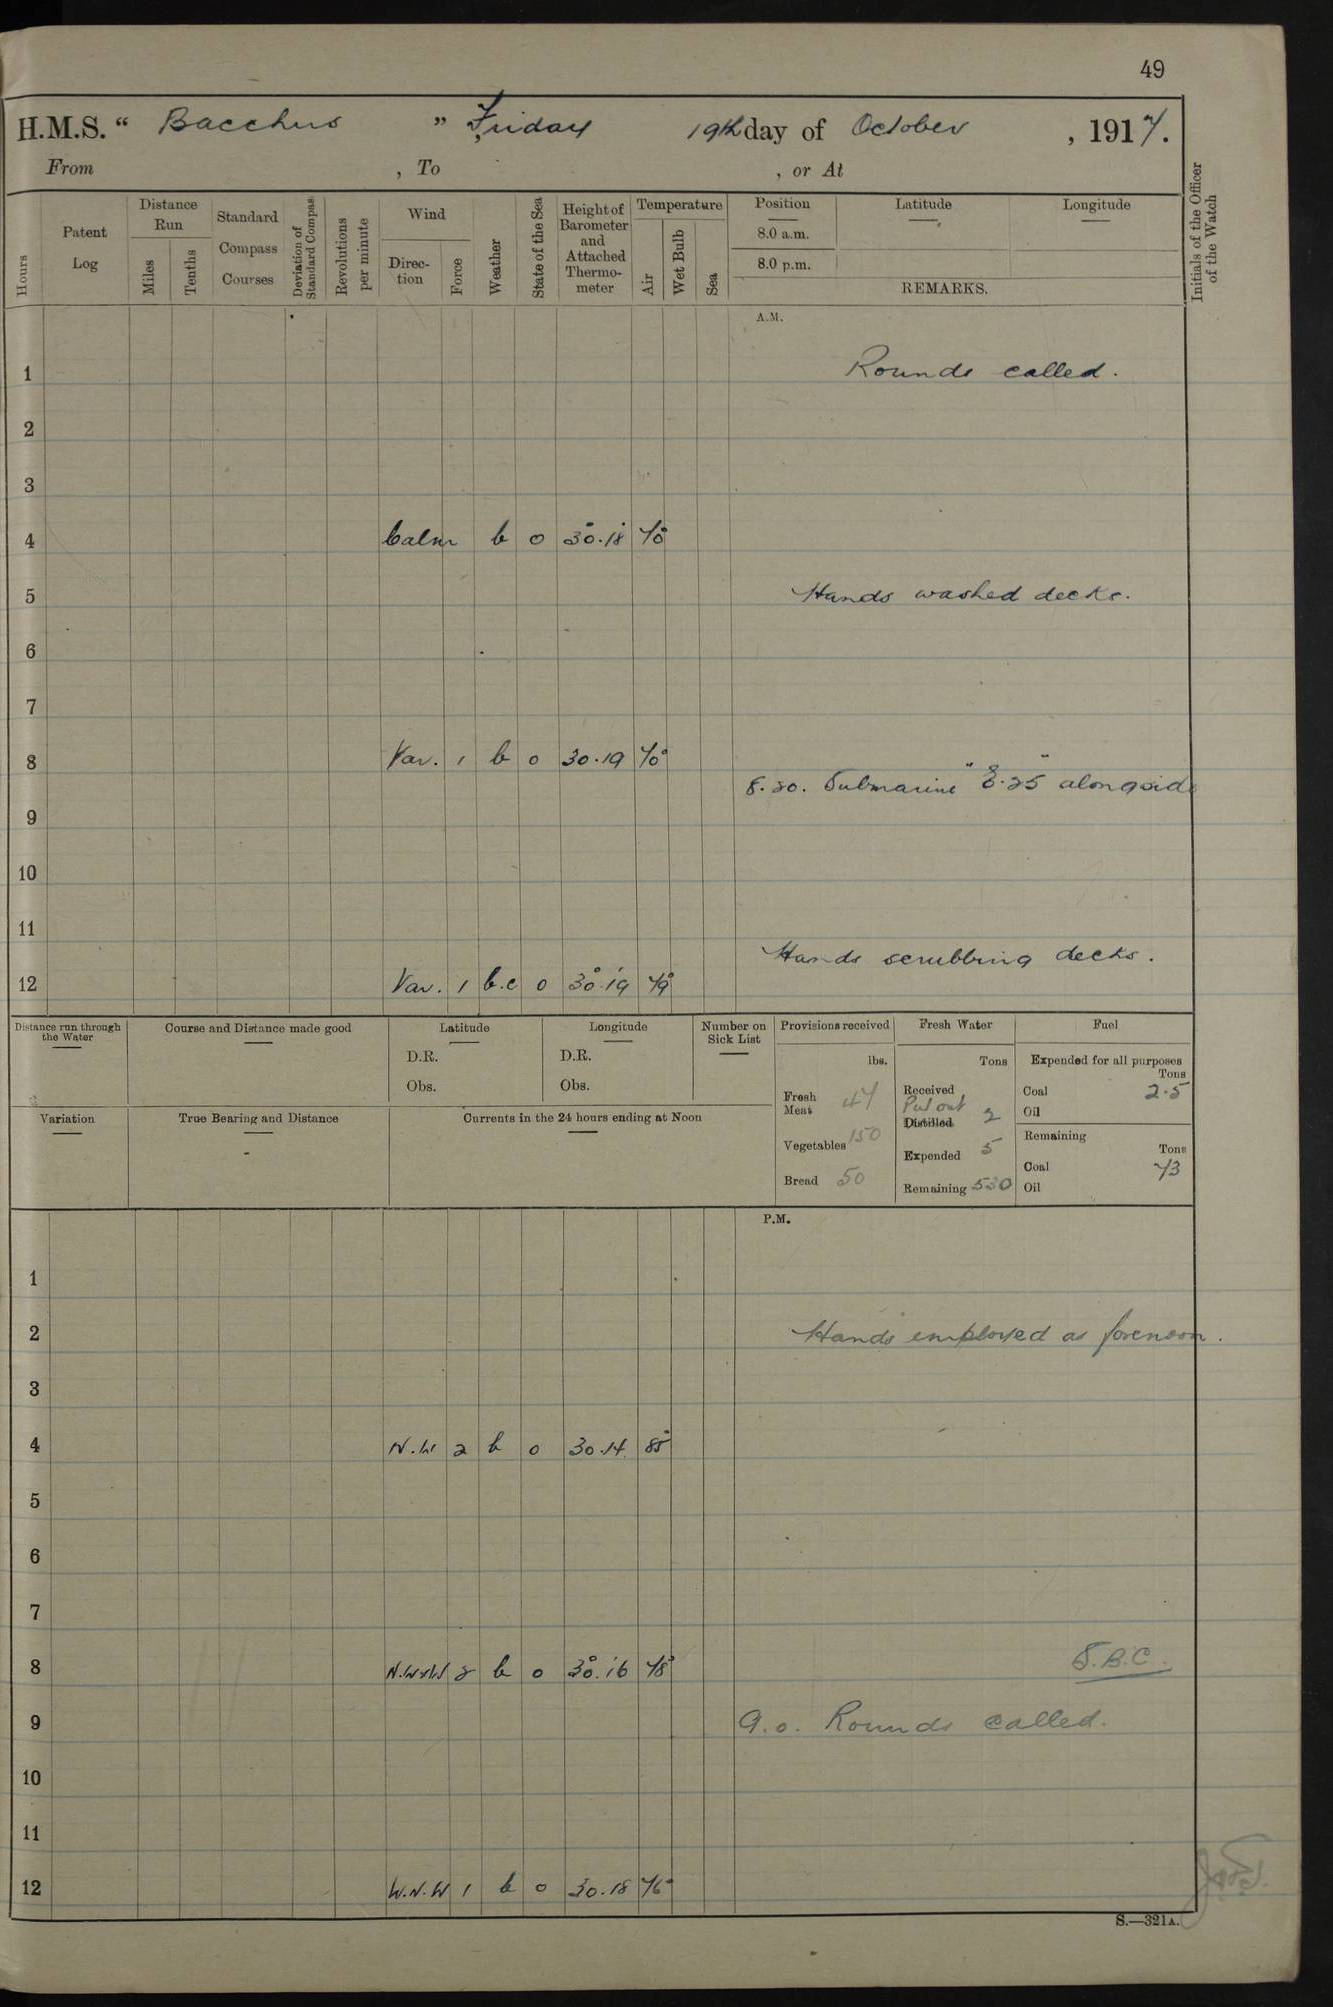 49
H.M.S. “ Bacchus ” Friday 19th day of October , 1917.
From , To , or At
Hours
Patent Log
Distance Run
Miles
Tenths
Standard Compass Courses
Deviation of Standard Compass
Revolutions per minute
Wind
Direc-tion
Force
Weather
State of the Sea
Height of Barometer and Attached Thermo-meter
Temperature
Air
Wet Bulb
Sea
Position Latitude Longitude
8.0 a.m.
8.0 p.m.
REMARKS.
Initials of the Officer of the Watch
A.M.
1 Rounds called.
2
3
4 Calm b 0 30.18 70°
5 Hands washed decks.
6
7
8 Var. 1 b 0 30.19 70°
8.20. Submarine "E.25" alongside
9
10
11
Hands scrubbing decks.
12 Var. 1 b.c 0 30.19 79°
Distance run through the Water
Course and Distance made good
Latitude
D.R.
Obs.
Longitude
D.R.
Obs.
Number on Sick List
Provisions received
lbs.
Fresh Meat 47
Vegetables 150
Bread 50
Fresh Water
Tons
Received
Put out 2
Distilled
Expended 5
Remaining 530
Fuel
Expended for all purposes
Tons
Coal 2.5
Oil
Remaining
Tons
Coal 73
Oil
Variation
True Bearing and Distance
Currents in the 24 hours ending at Noon
P.M.
1
2 Hands employed as forenoon.
3
4 N.W 2 b 0 30.14 85°
5
6
7
8 N.WxW 2 b 0 30.16 78°
S.B.C.
9 9.0. Rounds called.
10
11
12 W.N.W 1 b 0 30.18 76°
S.—321A.